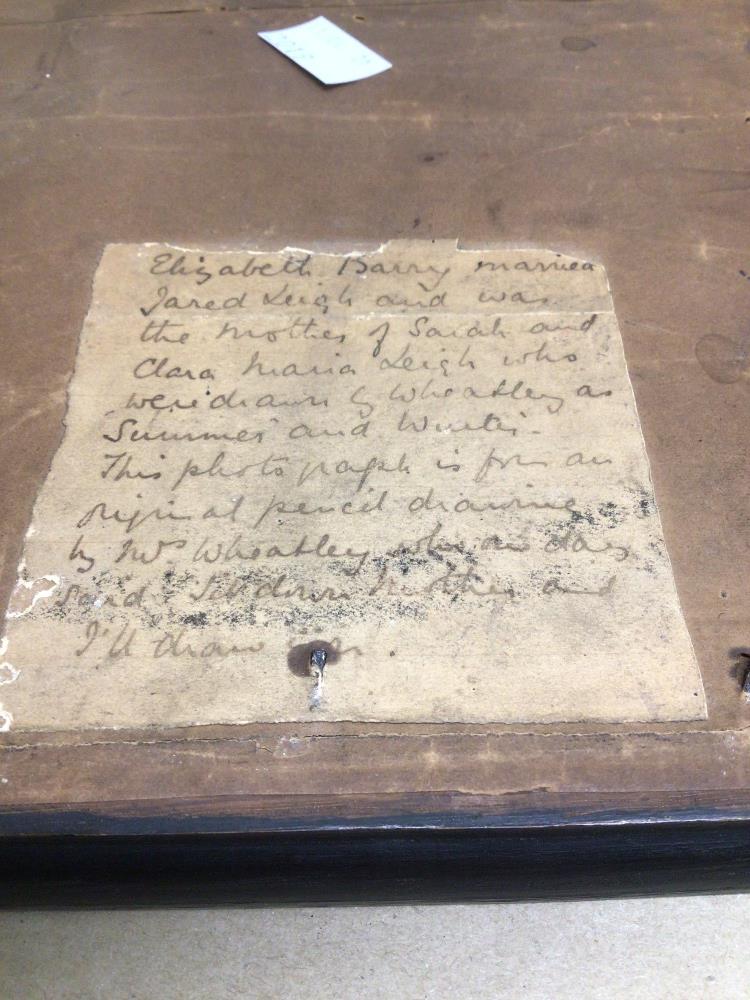 Elizabeth Barry married
Jared Leigh and was
the mother of Sarah and
Clara Maria Leigh who
were drawn by Wheatley as
Summer and Winter.
This photograph is from an
original pencil drawing
by Mrs Wheatley who one day
said Sit down Mother and
I'll draw .